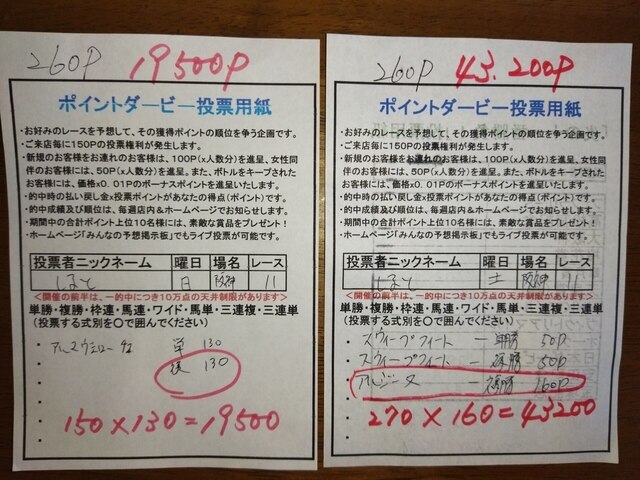 260P 19500P
ポイントダービー投票用紙
・お好みのレースを予想して、その獲得ポイントの順位を争う企画です。
・ご来店毎に150Pの投票権利が発生します。
・新規のお客様をお連れのお客様は、100P(x人数分)を進呈、女性同
伴のお客様には、50P(x人数分)を進呈。また、ボトルをキープされた
お客様には、価格x0.01Pのボーナスポイントを進呈いたします。
・的中時の払い戻し金x投票ポイントがあなたの得点(ポイント)です。
・的中成績及び順位は、毎週店内&ホームページでお知らせします。
・期間中の合計ポイント上位10名様には、素敵な賞品をプレゼント!
・ホームページ「みんなの予想掲示板」でもライブ投票が可能です。
投票者ニックネーム 曜日 場名 レース
しまと 日 阪神 11
<開催の前半は、一的中につき10万点の天井制限があります>
単勝・複勝・枠連・馬連・ワイド・馬単・三連複・三連単
(投票する式別を〇で囲んでください)
単 130
複 130
150×130=19500
260P 43.200P
ポイントダービー投票用紙
・お好みのレースを予想して、その獲得ポイントの順位を争う企画です。
・ご来店毎に150Pの投票権利が発生します。
・新規のお客様をお連れのお客様は、100P(x人数分)を進呈、女性同
伴のお客様には、50P(x人数分)を進呈。また、ボトルをキープされた
お客様には、価格x0.01Pのボーナスポイントを進呈いたします。
・的中時の払い戻し金x投票ポイントがあなたの得点(ポイント)です。
・的中成績及び順位は、毎週店内&ホームページでお知らせします。
・期間中の合計ポイント上位10名様には、素敵な賞品をプレゼント!
・ホームページ「みんなの予想掲示板」でもライブ投票が可能です。
投票者ニックネーム 曜日 場名 レース
しまと 土 阪神 11
<開催の前半は、一的中につき10万点の天井制限があります>
単勝・複勝・枠連・馬連・ワイド・馬単・三連複・三連単
(投票する式別を〇で囲んでください)
スウィープフィート ー 単勝 50P
スウィープフィート ー 複勝 50P
アルジーヌ ー 複勝 160P
270×160=43200